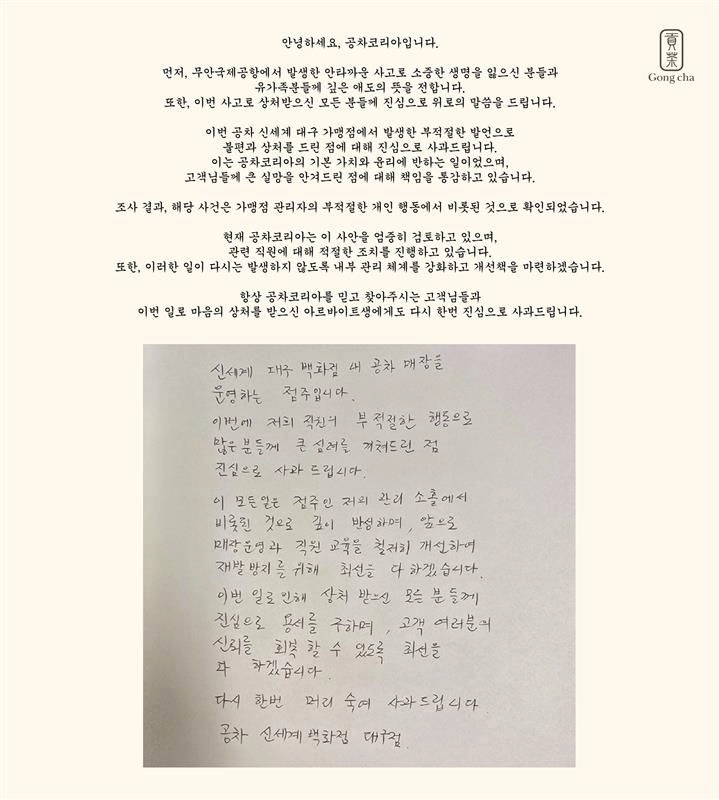 안녕하세요, 공차코리아입니다.
貢茶
Gong cha
먼저, 무안국제공항에서 발생한 안타까운 사고로 소중한 생명을 잃으신 분들과
유가족분들께 깊은 애도의 뜻을 전합니다.
또한, 이번 사고로 상처받으신 모든 분들께 진심으로 위로의 말씀을 드립니다.
이번 공차 신세계 대구 가맹점에서 발생한 부적절한 발언으로
불편과 상처를 드린 점에 대해 진심으로 사과드립니다.
이는 공차코리아의 기본 가치와 윤리에 반하는 일이었으며,
고객님들께 큰 실망을 안겨드린 점에 대해 책임을 통감하고 있습니다.
조사 결과, 해당 사건은 가맹점 관리자의 부적절한 개인 행동에서 비롯된 것으로 확인되었습니다.
현재 공차코리아는 이 사안을 엄중히 검토하고 있으며,
관련 직원에 대해 적절한 조치를 진행하고 있습니다.
또한, 이러한 일이 다시는 발생하지 않도록 내부 관리 체계를 강화하고 개선책을 마련하겠습니다.
항상 공차코리아를 믿고 찾아주시는 고객님들과
이번 일로 마음의 상처를 받으신 아르바이트생에게도 다시 한번 진심으로 사과드립니다.
신세계 대구 백화점 내 공차 매장을
운영하는 점주입니다.
이번에 저희 직원의 부적절한 행동으로
많은 분들께 큰 심려를 끼쳐드린 점
진심으로 사과 드립니다.
이 모든일은 점주인 저의 관리 소홀에서
비롯된 것으로 깊이 반성하며, 앞으로
매장운영과 직원 교육을 철저히 개선하여
재발 방지를 위해 최선을 다 하겠습니다.
이번 일로 인해 상처 받으신 모든 분들께
진심으로 용서를 구하며, 고객 여러분의
신뢰를 회복 할 수 있도록 최선을
다 하겠습니다.
다시 한번 머리 숙여 사과드립니다.
공차 신세계 백화점 대구점.